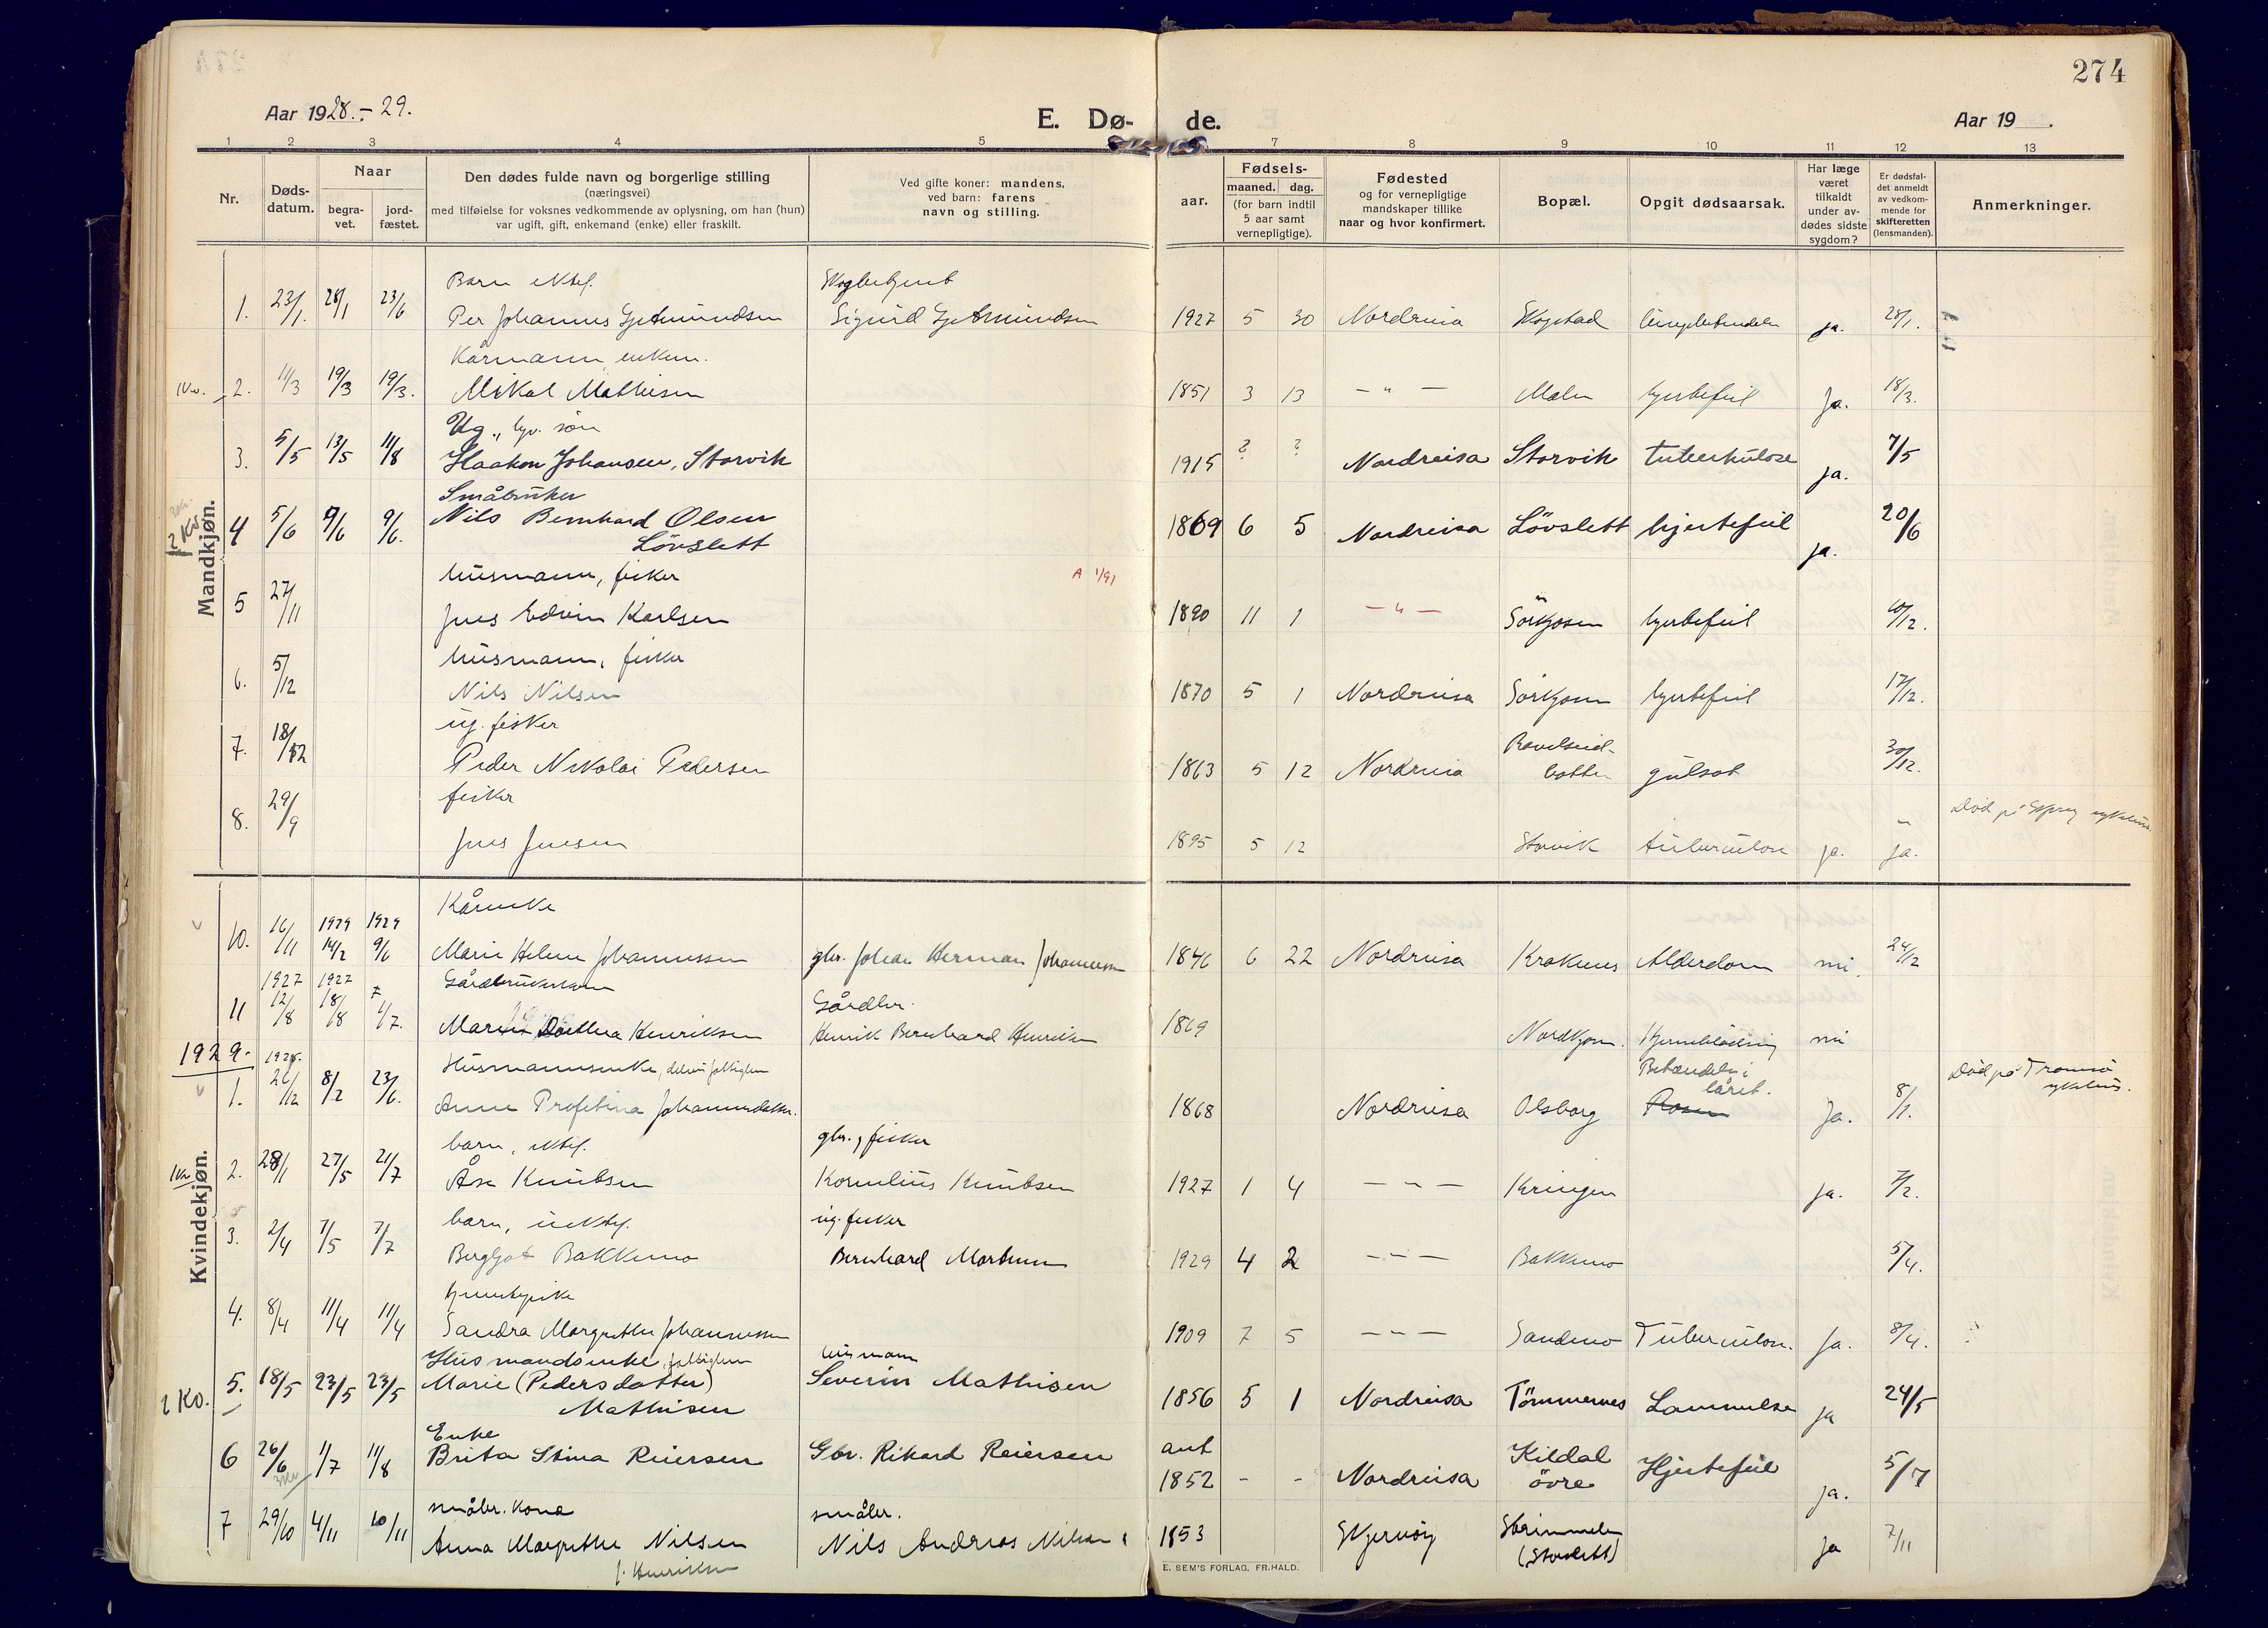 274
Aar 1928.-29.
E. Dø- de.
Aar 19 .
1 2 3 4 5 7 8 9 10 11 12 13
Nr.
Døds-
datum.
Naar
begra-
vet.
jord-
fæstet.
Den dødes fulde navn og borgerlige stilling
(næringsvei)
med tilføielse for voksnes vedkommende av oplysning, om han (hun)
var ugift, gift, enkemand (enke) eller fraskilt.
Ved gifte koner: mandens,
ved barn: farens
navn og stilling.
aar.
Fødsels-
maaned. dag.
(for barn indtil
5 aar samt
vernepligtige).
Fødested
og for vernepligtige
mandskaper tillike
naar og hvor konfirmert.
Bopæl.
Opgit dødsaarsak.
Har læge
været
tilkaldt
under av-
dødes sidste
sygdom?
Er dødsfal-
det anmeldt
av vedkom-
mende for
skifteretten
(lensmanden).
Anmerkninger.
Mandkjøn.
Barn ektef. Skogbetjent
1. 23/1. 28/1 23/6 Per Johannes Sigurd 1927 5 30 Nordreisa ja. 28/1.
Kårmann, enkem.
2. 11/3 19/3 19/3. Mikal Mathisen 1851 3 13 - " - hjertefeil ja. 18/3.
Ug., søn
3. 5/5 13/5 11/8 Haakon Johansen, Storvik 1915 ? ? Nordreisa Storvik tuberkulose ja. 7/5
Småbruker
4 5/6 9/6 9/6. Nils Bernhard Olsen 1869 6 5 Nordreisa Lövslett hjertefeil ja. 20/6
Lövslett
husmann, fisker A 1/91
5 27/11 Jens Edvin Karlsen 1890 11 1 - " - Sörkjosen hjertefeil 10/12.
husmann, fisker
6. 5/12 Nils Nilsen 1870 5 1 Nordreisa Sörkjosen hjertefeil 17/12.
ug. fisker
7. 18/12 Peder Nikolai Pedersen 1863 5 12 Nordreisa gulsot 30/12.
fisker
8. 29/9 Jens Jensen 1895 5 12 Storvik tuberculose ja. ja. Død på
Kvindekjøn.
Kårenke
10. 16/11 1929 14/2 1929 9/6 Marie Helene Johannessen gbr. Johan Herman Johannessen 1846 6 22 Nordreisa Alderdom nei. 24/12
1927 1927 Gårdbrukerkone Gårdbr.
11 12/8 18/8 1/7. Henriksen Henrik Bernhard Henriksen 1869 Nordkjosen. nei
1929. 1928.
Husmannsenke,
1. 26/12 8/2 23/6. Anne 1868 Nordreisa Olsborg Betændelse i låret. Ja. 8/1. Død på Tromsø sykehus.
barn, ektef. gbr., fisker
2. 28/1 27/5 21/7 Åse Knutsen Kornelius Knutsen 1927 1 4 - " - Kringen ja. 7/2.
barn, uektef. ug. fisker
3. 2/4 7/5 7/7 Bergljot Bakkemo Bernhard Mortensen 1929 4 2 - " - Bakkemo 5/4.
tjenestepike
4. 8/4 11/4 11/4 Sandra Margrethe Johannessen 1909 7 5 - " - Sandmo Tuberculose. Ja. 8/4.
Husmandsenke, husmann
5. 18/5 23/5 23/5 Marie (Pedersdatter) Severin Mathisen 1856 5 1 Nordreisa Tömmernes Lammelse ja 24/5
Mathisen
Enke
6 26/6 1/7 11/8 Brita Stina Reiersen Gbr. Rikard Reiersen ant 1852 - - Nordreisa Kildal övre Hjertefeil ja. 5/7
småbr. kone småbr.
7 29/10 4/11 10/11 Anna Margrethe Nilsen Nils Andreas Nilsen 1853 Skjervöy (Storslett) ja 7/11
f. Henriksen
E. SEM'S FORLAG, FR.HALD.